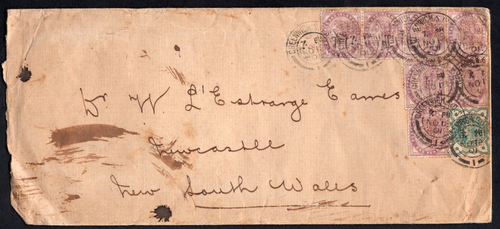 Dr W L'Estrange Eames
Newcastle
New South Wales